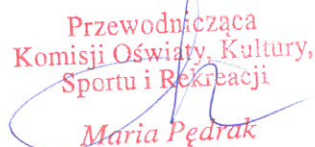 Przewodnicząca
Komisji Oświaty, Kultury,
Sportu i Rekreacji
Maria Pędrak